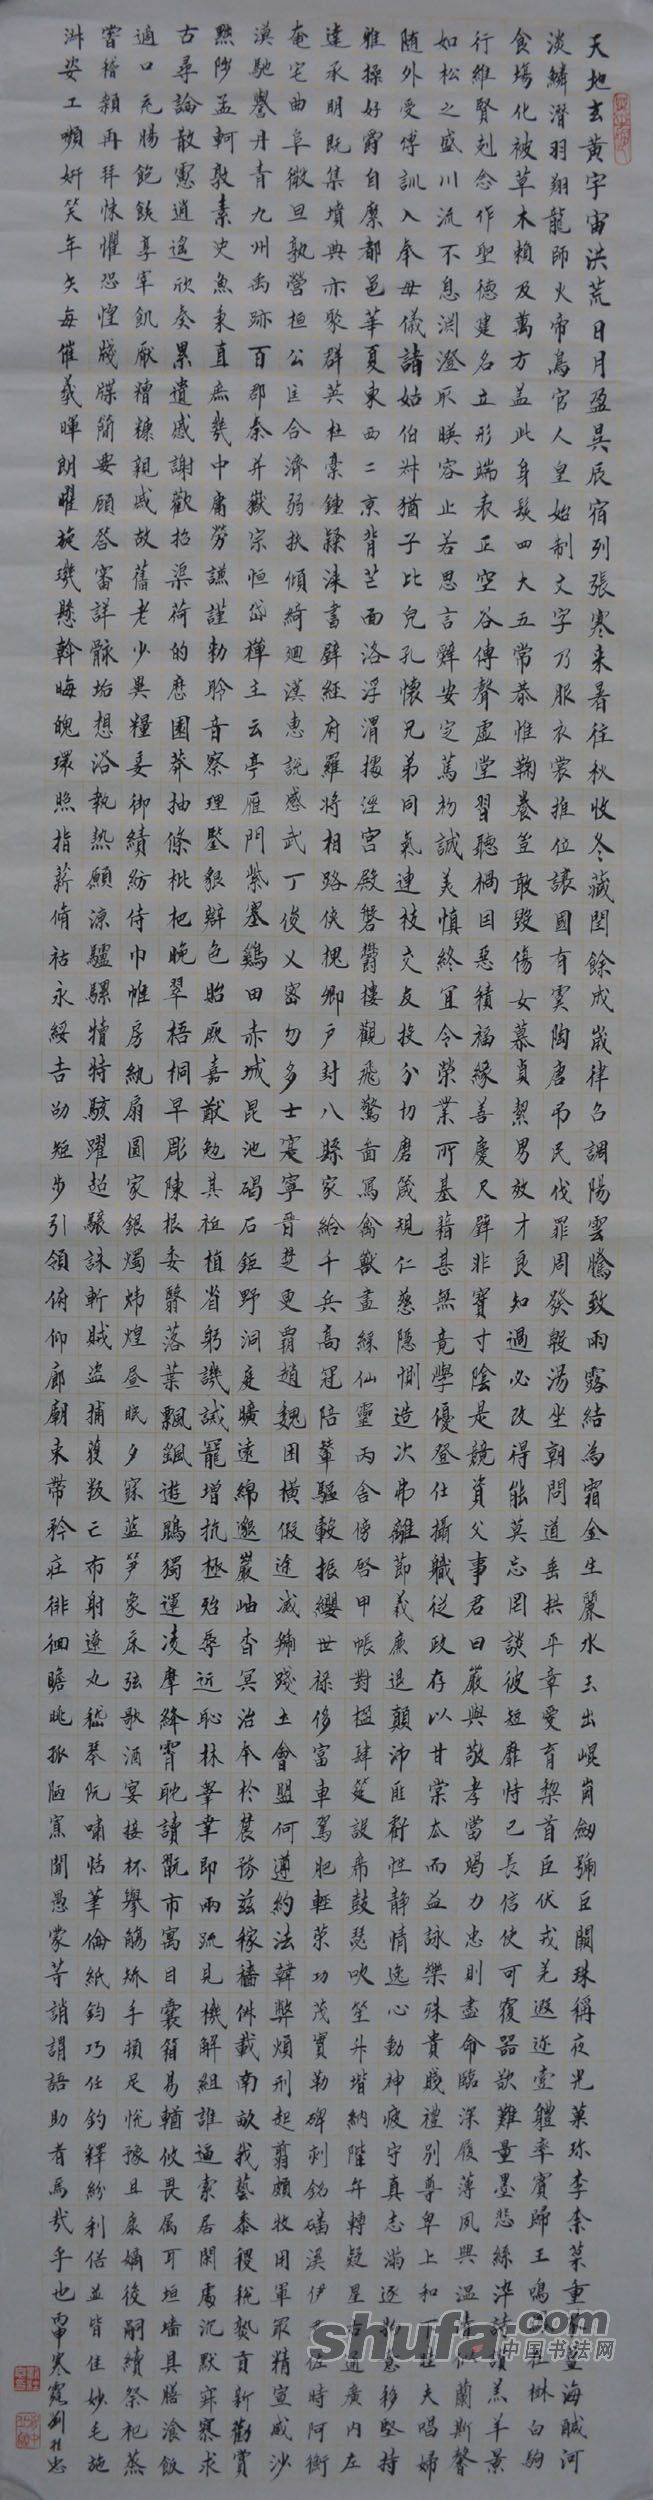 天地玄黃宇宙洪荒日月盈昃辰宿列張寒來暑往秋收冬藏閏餘成歲律呂調陽雲騰致雨露結為霜金生麗水玉出崐崗劒號巨闕珠稱夜光菓珍李柰菜重芥薑海醎河
淡鱗潛羽翔龍師火帝鳥官人皇始制文字乃服衣裳推位讓國有虞陶唐弔民伐罪周發殷湯坐朝問道垂拱平章愛育黎首臣伏戎羌遐邇壹體率賓歸王鳴鳳在樹白駒
食場化被草木賴及萬方蓋此身髮四大五常恭惟鞠養豈敢毀傷女慕貞絜男效才良知過必改得能莫忘罔談彼短靡恃己長信使可覆器欲難量墨悲絲淬詩讚羔羊景
行維賢剋念作聖德建名立形端表正空谷傳聲虛堂習聽禍因惡積福緣善慶尺璧非寶寸陰是競資父事君曰嚴與敬孝當竭力忠則盡命臨深履薄夙興溫凊似蘭斯馨
如松之盛川流不息淵澄取暎容止若思言辭安定篤初誠美慎終宜令榮業所基藉甚無竟學優登仕攝職從政存以甘棠去而益詠樂殊貴賤禮別尊卑上和下睦夫唱婦
隨外受傅訓入奉母儀諸姑伯叔猶子比兒孔懷兄弟同氣連枝交友投分切磨箴規仁慈隱惻造次弗離節義廉退顛沛匪虧性靜情逸心動神疲守真志滿逐物意移堅持
雅操好爵自縻都邑華夏東西二京背芒面洛浮渭據涇宮殿磐鬱樓觀飛驚圖寫禽獸畫綵仙靈丙舍傍啓甲帳對楹肆筵設席鼓瑟吹笙升階納陛弁轉疑星右通廣內左
達承明既集墳典亦聚群英杜稾鍾隸漆書壁經府羅將相路俠槐卿戶封八縣家給千兵高冠陪輦驅轂振纓世祿侈富車駕肥輕策功茂實勒碑刻銘磻溪伊尹佐時阿衡
奄宅曲阜微旦孰營桓公匡合濟弱扶傾綺迴漢惠說感武丁俊乂密勿多士寔寧晉楚更霸趙魏困橫假途滅虢踐土會盟何遵約法韓弊煩刑起翦頗牧用軍最精宣威沙
漠馳譽丹青九州禹跡百郡秦并嶽宗恒岱禪主云亭雁門紫塞鷄田赤城昆池碣石鉅野洞庭曠遠綿邈巖岫杳冥治本於農務茲稼穡俶載南畝我藝黍稷稅熟貢新勸賞
黜陟孟軻敦素史魚秉直庶幾中庸勞謙謹勅聆音察理鑒貌辨色貽厥嘉猷勉其祗植省躬譏誡寵增抗極殆辱近恥林皋幸即兩疏見機解組誰逼索居閑處沉默寂寥求
古尋論散慮逍遙欣奏累遣慼謝歡招渠荷的歷園莽抽條枇杷晚翠梧桐早彫陳根委翳落葉飄颻遊鵾獨運凌摩絳霄耽讀翫市寓目囊箱易輶攸畏屬耳垣墻具膳飡飯
適口充腸飽飫享宰飢厭糟糠親戚故舊老少異糧妾御績紡侍巾帷房紈扇圓家銀燭煒煌晝眠夕寐藍笋象床弦歌酒宴接杯舉觴矯手頓足悅豫且康嫡後嗣續祭祀蒸
嘗稽顙再拜悚懼恐惶牋牒簡要顧答審詳骸垢想浴執熱願涼驢騾犢特駭躍超驤誅斬賊盜捕獲叛亡布射遼丸嵇琴阮嘯恬筆倫紙鈞巧任釣釋紛利俗並皆佳妙毛施
淑姿工嚬妍笑年矢每催羲暉朗曜旋璣懸斡晦魄環照指薪脩祜永綏吉劭矩步引領俯仰廊廟束帶矜莊徘徊瞻眺孤陋寡聞愚蒙等誚謂語助者焉哉乎也丙申寒露劉桂忠
shufa.com
中国书法网